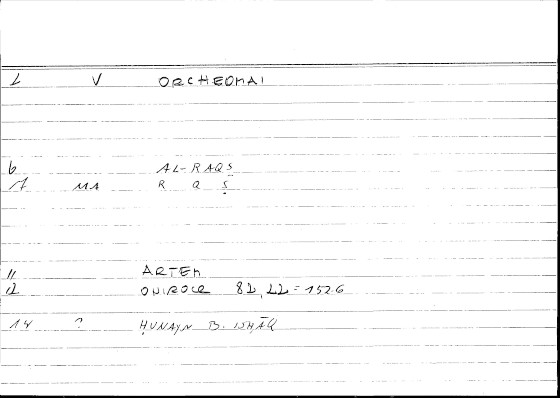 1 V ORCHEOMAI
6 AL-RAQṢ
7 MA R Q Ṣ
11 ARTEM
12 ONIROCR 82,22 = 152.6
14 ? ḤUNAYN B. ISḤĀQ